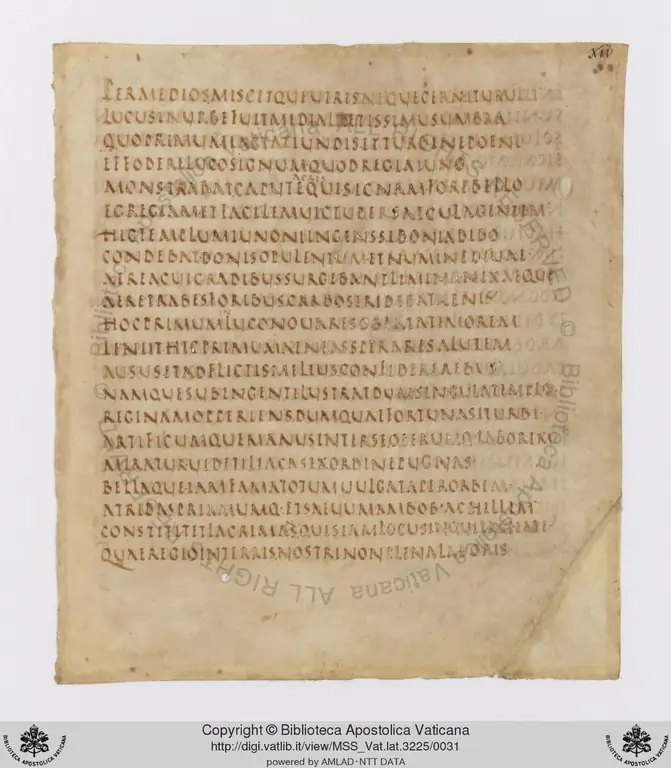 XIII
PERMEDIOSMISCETQUEVIRISNEQUECERNITURULLI
LUCUSINURBEFUITMEDIALAETISSIMUSUMBRA
QUOPRIMUMIACTATIUNDISETTURBINEPOENI
EFFODERELUCOSIGNUMQUODREGIAIUNO
MONSTRARATCAPUTEQUISICNAMFOREBELLO
ACRIS
EGREGIAMETFACILEMUICTUPERSAECULAGENTEM
HICTEMPLUMIUNONIINGENSSIDONIADIDO
CONDEBATDONISOPULENTUMETNUMINEDIUAE
AEREACUIGRADIBUSSURGEBANTLIMINANEXAEQUE
AERETRABESFORIBUSCARDOSTRIDEBATAENIS
HOCPRIMUMLUCONOUARESOBLATATIMOREM
IN
LENIITHICPRIMUMAENEASSPERARESALUTEM
AUSUSETADFLICTISMELIUSCONFIDEREREBUS
NAMQUESUBINGENTILUSTRATDUMSINGULATEMPLO
REGINAMOPPERIENSDUMQUAEFORTUNASITURBI
ARTIFICUMQUEMANUSINTERSEOPERUMQ·LABOREM
MIRATURUIDETILIACASEXORDINEPUGNAS
BELLAQUEIAMFAMATOTUMUULGATAPERORBEM
ATRIDASPRIAMUMQ·ETSAEUUMAMBOB·ACHILLEM
CONSTITITETLACRIMANSQUISIAMLOCUSINQUITACHATE
QUAEREGIOINTERRISNOSTRINONPLENALABORIS
Copyright © Biblioteca Apostolica Vaticana
http://digi.vatlib.it/view/MSS_Vat.lat.3225/0031
powered by AMLAD·NTT DATA